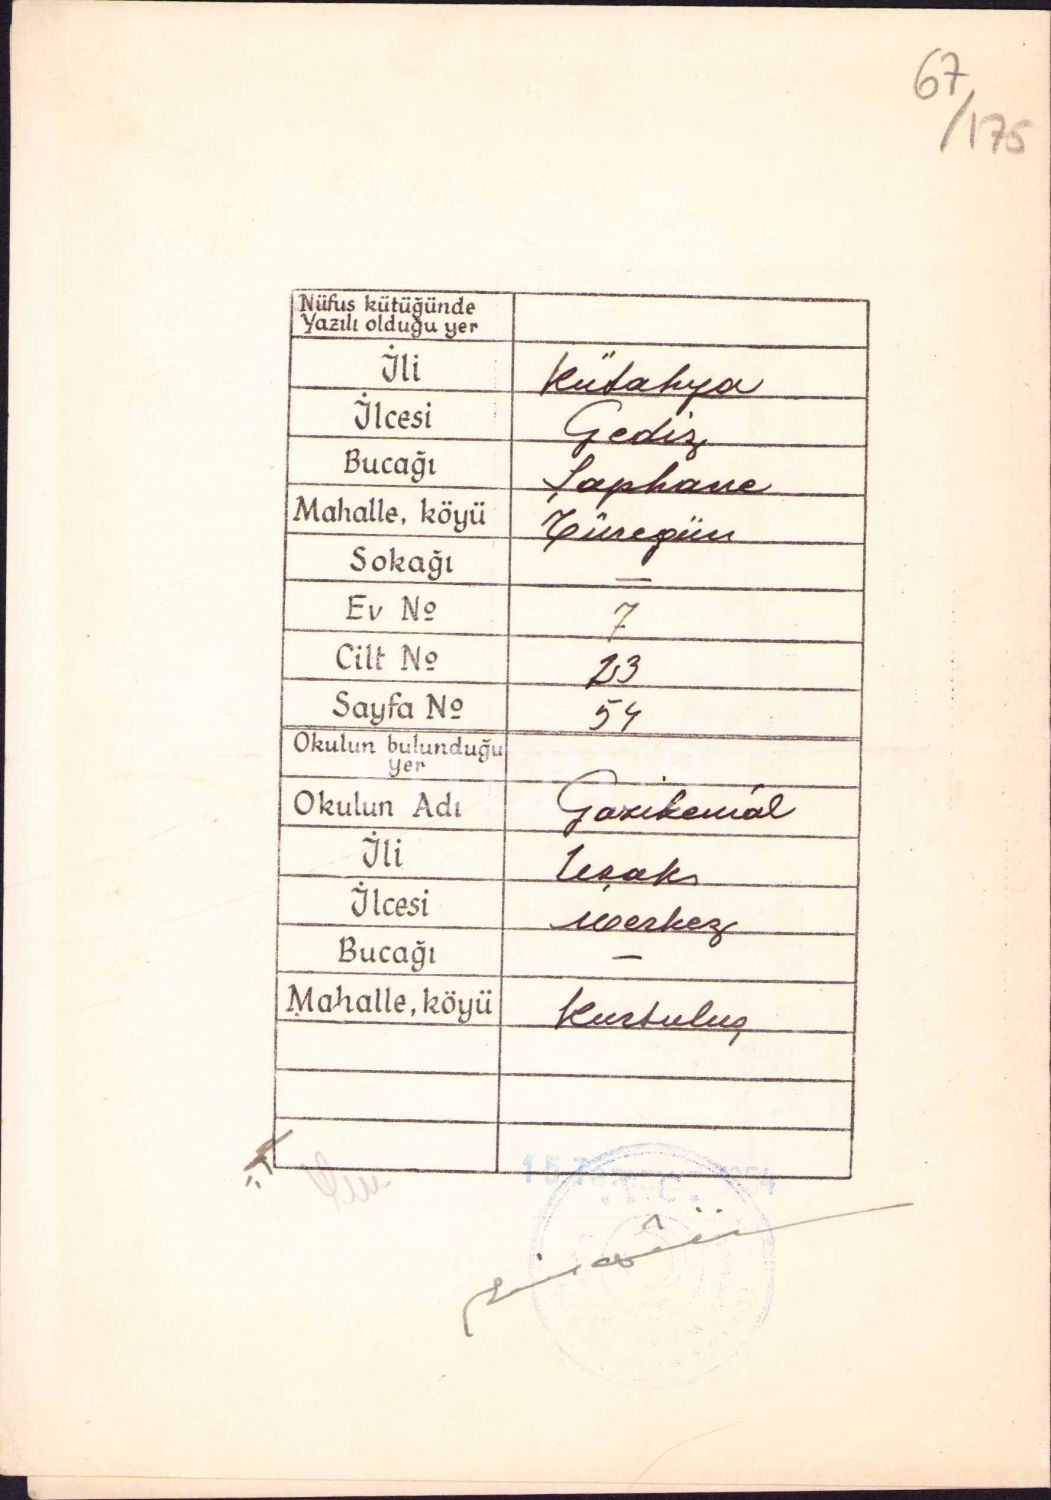 67
/175
Nüfus kütüğünde
Yazılı olduğu yer
İli Kütahya
İlcesi Gediz
Bucağı Şaphane
Mahalle, köyü
Sokağı —
Ev No 7
Cilt No 23
Sayfa No 54
Okulun bulunduğu
yer
Okulun Adı Gazikemâl
İli Uşak
İlcesi Merkez
Bucağı —
Mahalle, köyü Kurtuluş
15 1954
T.C.